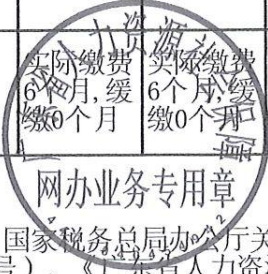 实际缴费
6个月,缓
缴0个月
实际缴费
6个月,缓
缴0个月
人力资源社会保障
网办业务专用章
国家税务总局办公厅关
号)、《广东省人力资